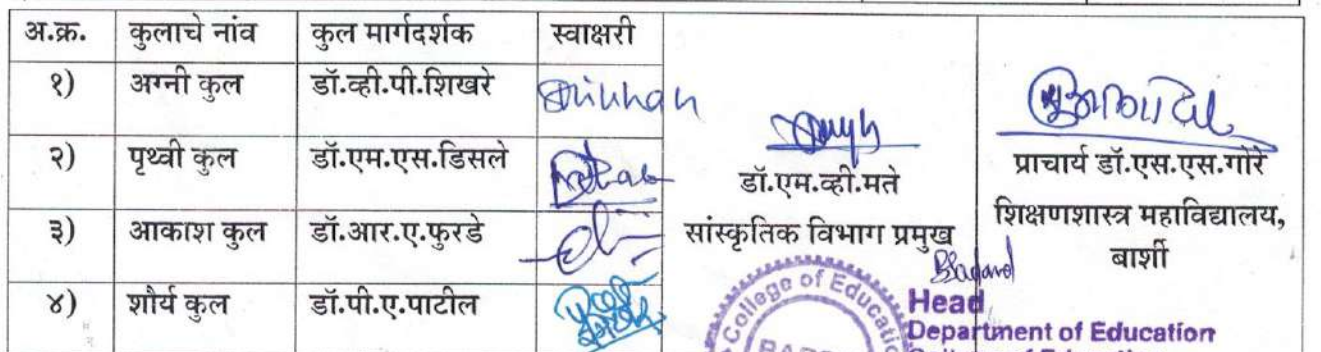 अ.क्र. कुलाचे नांव कुल मार्गदर्शक स्वाक्षरी
१) अग्नी कुल डॉ.व्ही.पी.शिखरे
२) पृथ्वी कुल डॉ.एम.एस.डिसले
३) आकाश कुल डॉ.आर.ए.फुरडे
४) शौर्य कुल डॉ.पी.ए.पाटील
डॉ.एम.व्ही.मते
सांस्कृतिक विभाग प्रमुख
प्राचार्य डॉ.एस.एस.गोरे
शिक्षणशास्त्र महाविद्यालय,
बार्शी
College of Education
Head
Department of Education
College of Education